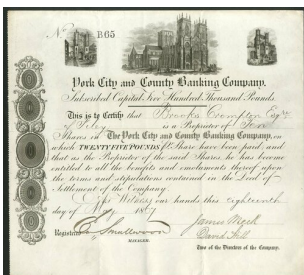 No B65
York City and County Banking Company.
Subscribed Capital Five Hundred Thousand Pounds.
This is to Certify that Brooks Crompton Esqre
of is a Proprietor of Four
Shares in The York City and County Banking Company, on
which TWENTY FIVE POUNDS Share have been paid; and
that as the Proprietor of the said Shares, he has become
entitled to all the benefits and emoluments thereof upon
the terms and stipulations contained in the Deed of
Settlement of the Company.
As Witness our hands this eighteenth
day of 18
Registered Smallwood James Meek
MANAGER. David Hill
Two of the Directors of the Company.